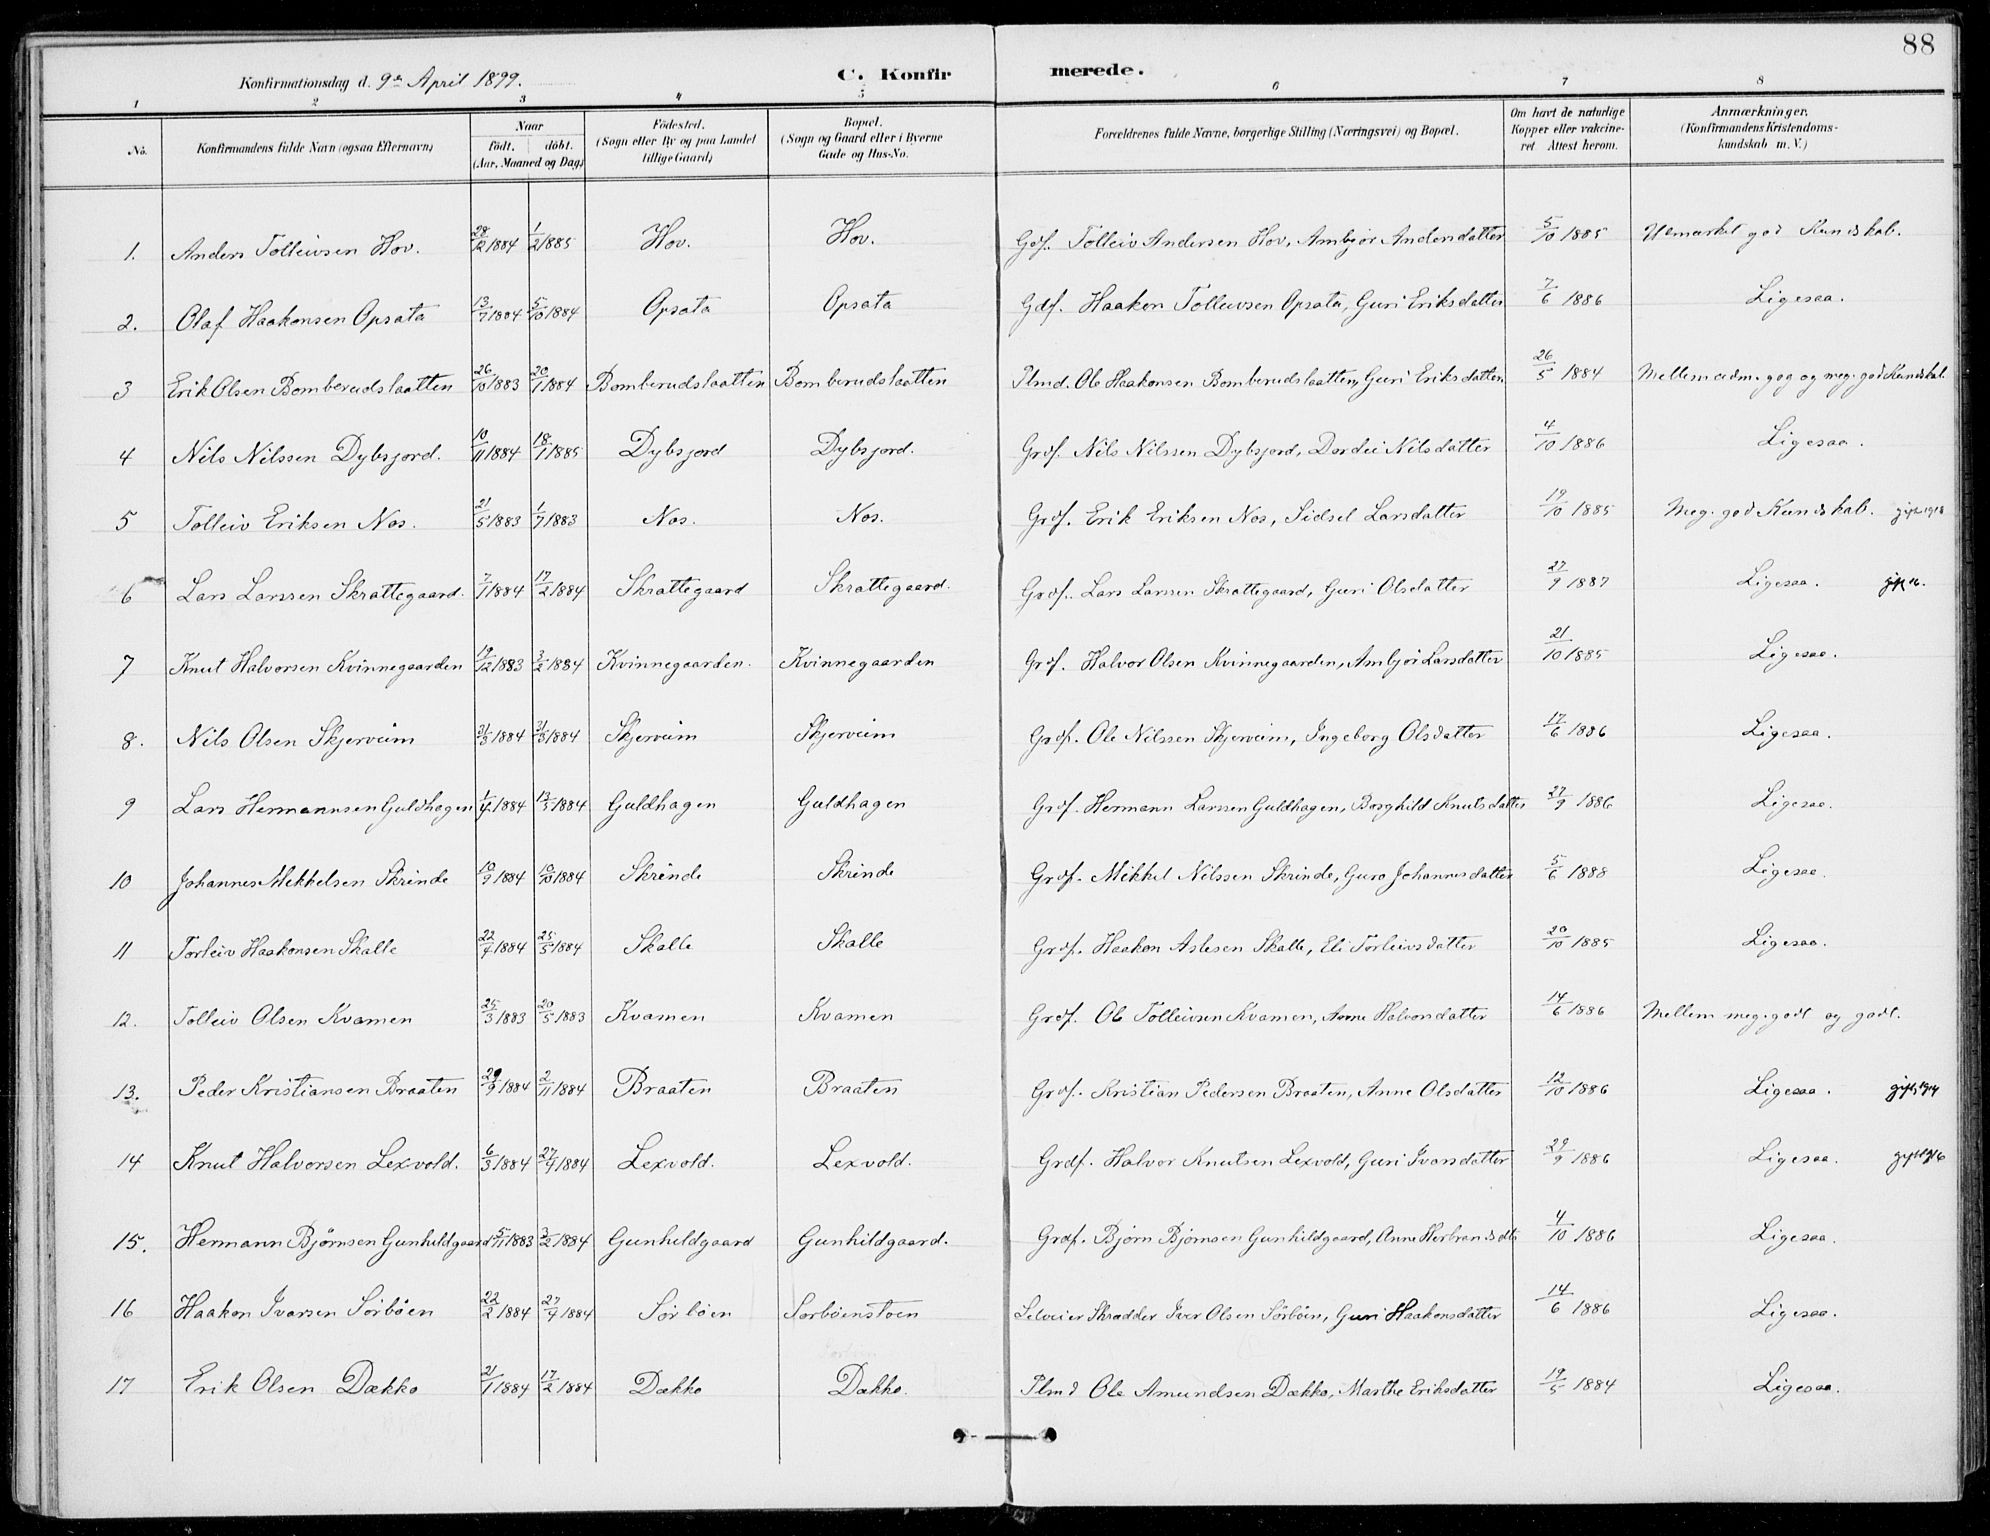 88
Konfirmationsdag d. 9de April 1899. C. Konfirmerede.
1 2 3 4 5 6 7 8
No. Konfirmandens fulde Navn (ogsaa Efternavn) Naar födt. döbt. (Aar, Maaned og Dag) Födested. (Sogn eller By og paa Landet tillige Gaard) Bopæl. (Sogn og Gaard eller i Byerne Gade og Hus-No. Forældrenes fulde Navne, borgerlige Stilling (Næringsvei) og Bopæl. Om havt de naturlige Kopper eller vakcineret Attest herom. Anmærkninger. (Konfirmandens Kristendomskundskab m. V.)
1. Anders Tolleivsen Hov. 28/12 1884 1/2 1885 Hov. Hov. Tolleiv Andersen Hov, Ambjør Andersdatter 5/10 1885 Udmærket god Kundskab.
2. Olaf Haakonsen Opsata 13/7 1884 5/10 1884 Opsata Opsata Haakon Tolleivsen Opsata, Guri Eriksdatter 7/6 1886 Ligesaa.
3 Erik Olsen Bomberudslaatten 26/10 1883 20/1 1884 Bomberudslaatten Bomberudslaatten Plmd. Ole Haakonsen Bomberudslaatten, Guri Eriksdatter 26/5 1884 Mellem udm. god og meg. god Kundskab.
4 Nils Nilssen Dybsjord. 10/11 1884 18/1 1885 Dybsjord Dybsjord. Grdf. Nils Nilssen Dybsjord, Dordei Nilsdatter 4/10 1886 Ligesaa.
5 Tolleiv Eriksen Nos. 21/5 1883 1/7 1883 Nos. Nos. Grdf. Erik Eriksen Nos, Sidsel Larsdatter 19/10 1885 Meg. god Kundskab. gift 1918
6 Lars Larssen Skrattegaard. 7/1 1884 17/2 1884 Skrattegaard Skrattegaard. Grdf. Lars Larssen Skrattegaard, Guri Olsdatter 27/9 1887 Ligesaa. gift
7 Knut Halvorsen Kvinnegaarden 19/12 1883 3/2 1884 Kvinnegaarden. Kvinnegaarden Grdf. Halvor Olsen Kvinnegaarden, Ambjør Larsdatter 21/10 1885 Ligesaa.
8. Nils Olsen Skjerveim 31/3 1884 1884 Skjerveim Skjerveim Grdf. Ole Nilssen Skjerveim, Ingeborg Olsdatter 17/6 1886 Ligesaa.
9 Lars Hermannsen Guldhagen 1/4 1884 13/5 1884 Guldhagen Guldhagen Grdf. Hermann Larssen Guldhagen, Borghild Knutsdatter 27/9 1886 Ligesaa.
10 Johannes Mekkelsen Skrinde 10/9 1884 19/10 1884 Skrinde Skrinde Grdf. Mikkel Nilssen Skrinde, Guro Johannesdatter 5/6 1888 Ligesaa.
11 Torleiv Haakonsen Skalle 22/4 1884 25/5 1884 Skalle Skalle Grdf. Haakon Aslesen Skalle, Eli Torleivsdatter 20/10 1885 Ligesaa.
12. Tolleiv Olsen Kvamen 25/3 1883 20/5 1883 Kvamen Kvamen Grdf. Ole Tolleivsen Kvamen, Anne Halvorsdatter 14/6 1886 Mellem meg. godt og godt.
13. Peder Kristiansen Braaten 29/9 1884 2/11 1884 Braaten Braaten Grdf. Kristian Pedersen Braaten, Anne Olsdatter 12/10 1886 Ligesaa. gift 1914
14 Knut Halvorsen Lexvold. 6/3 1884 27/4 1884 Lexvold. Lexvold. Grdf. Halvor Knutsen Lexvold, Guri Ivarsdatter 29/9 1886 Ligesaa. gift 1916
15. Hermann Bjørnsen Gunhildgaard 5/11 1883 3/2 1884 Gunhildgaard Gunhildgaard. Grdf. Bjørn Bjørnsen Gunhildgaard, Anne Herbrandsdtr 4/10 1886 Ligesaa.
16 Haakon Ivarsen Sörböen 22/2 1884 27/4 1884 Sörböen Sorböenstoen Selveier Skrædder Iver Olsen Sörböen, Guri Haakonsdatter 14/6 1886 Ligesaa.
17 Erik Olsen Dækko 21/1 1884 17/2 1884 Dækko Dækko. Plmd Ole Amundsen Dækko, Marthe Eriksdatter 19/5 1884 Ligesaa.